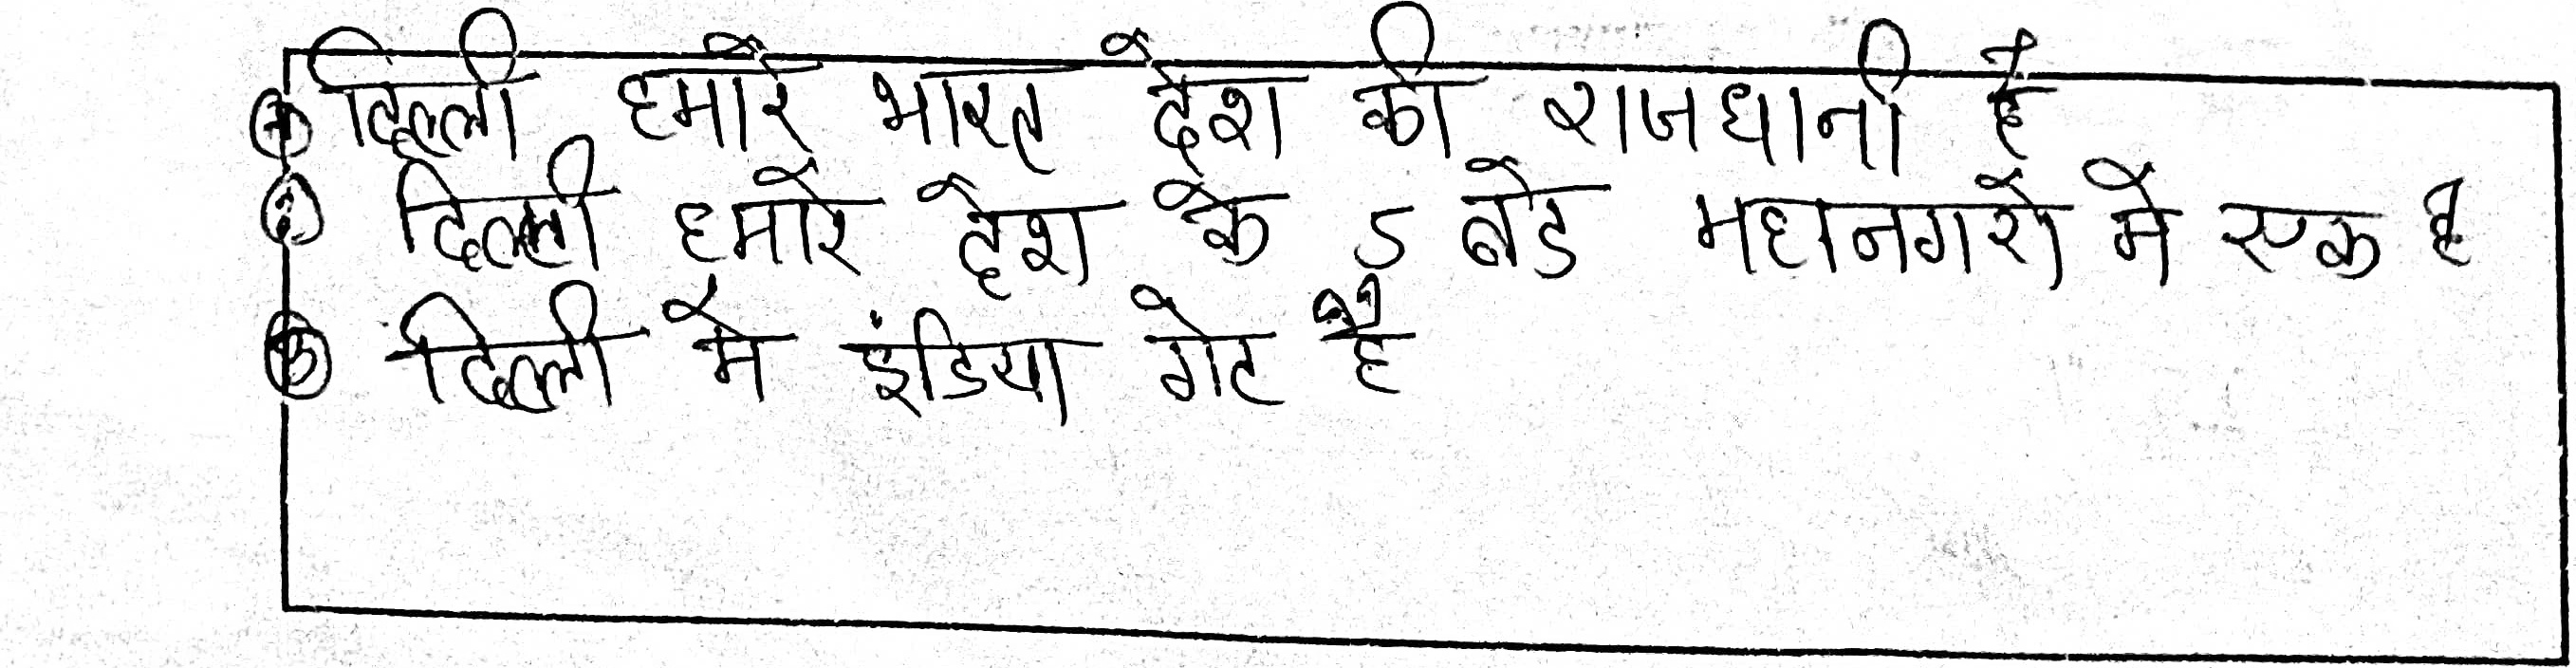 ① दिल्ली हमारे भारत देश की राजधानी है
② दिल्ली हमारे देश के 5 बडे महानगरो मे एक है
③ दिल्ली मे इंडिया गेट है